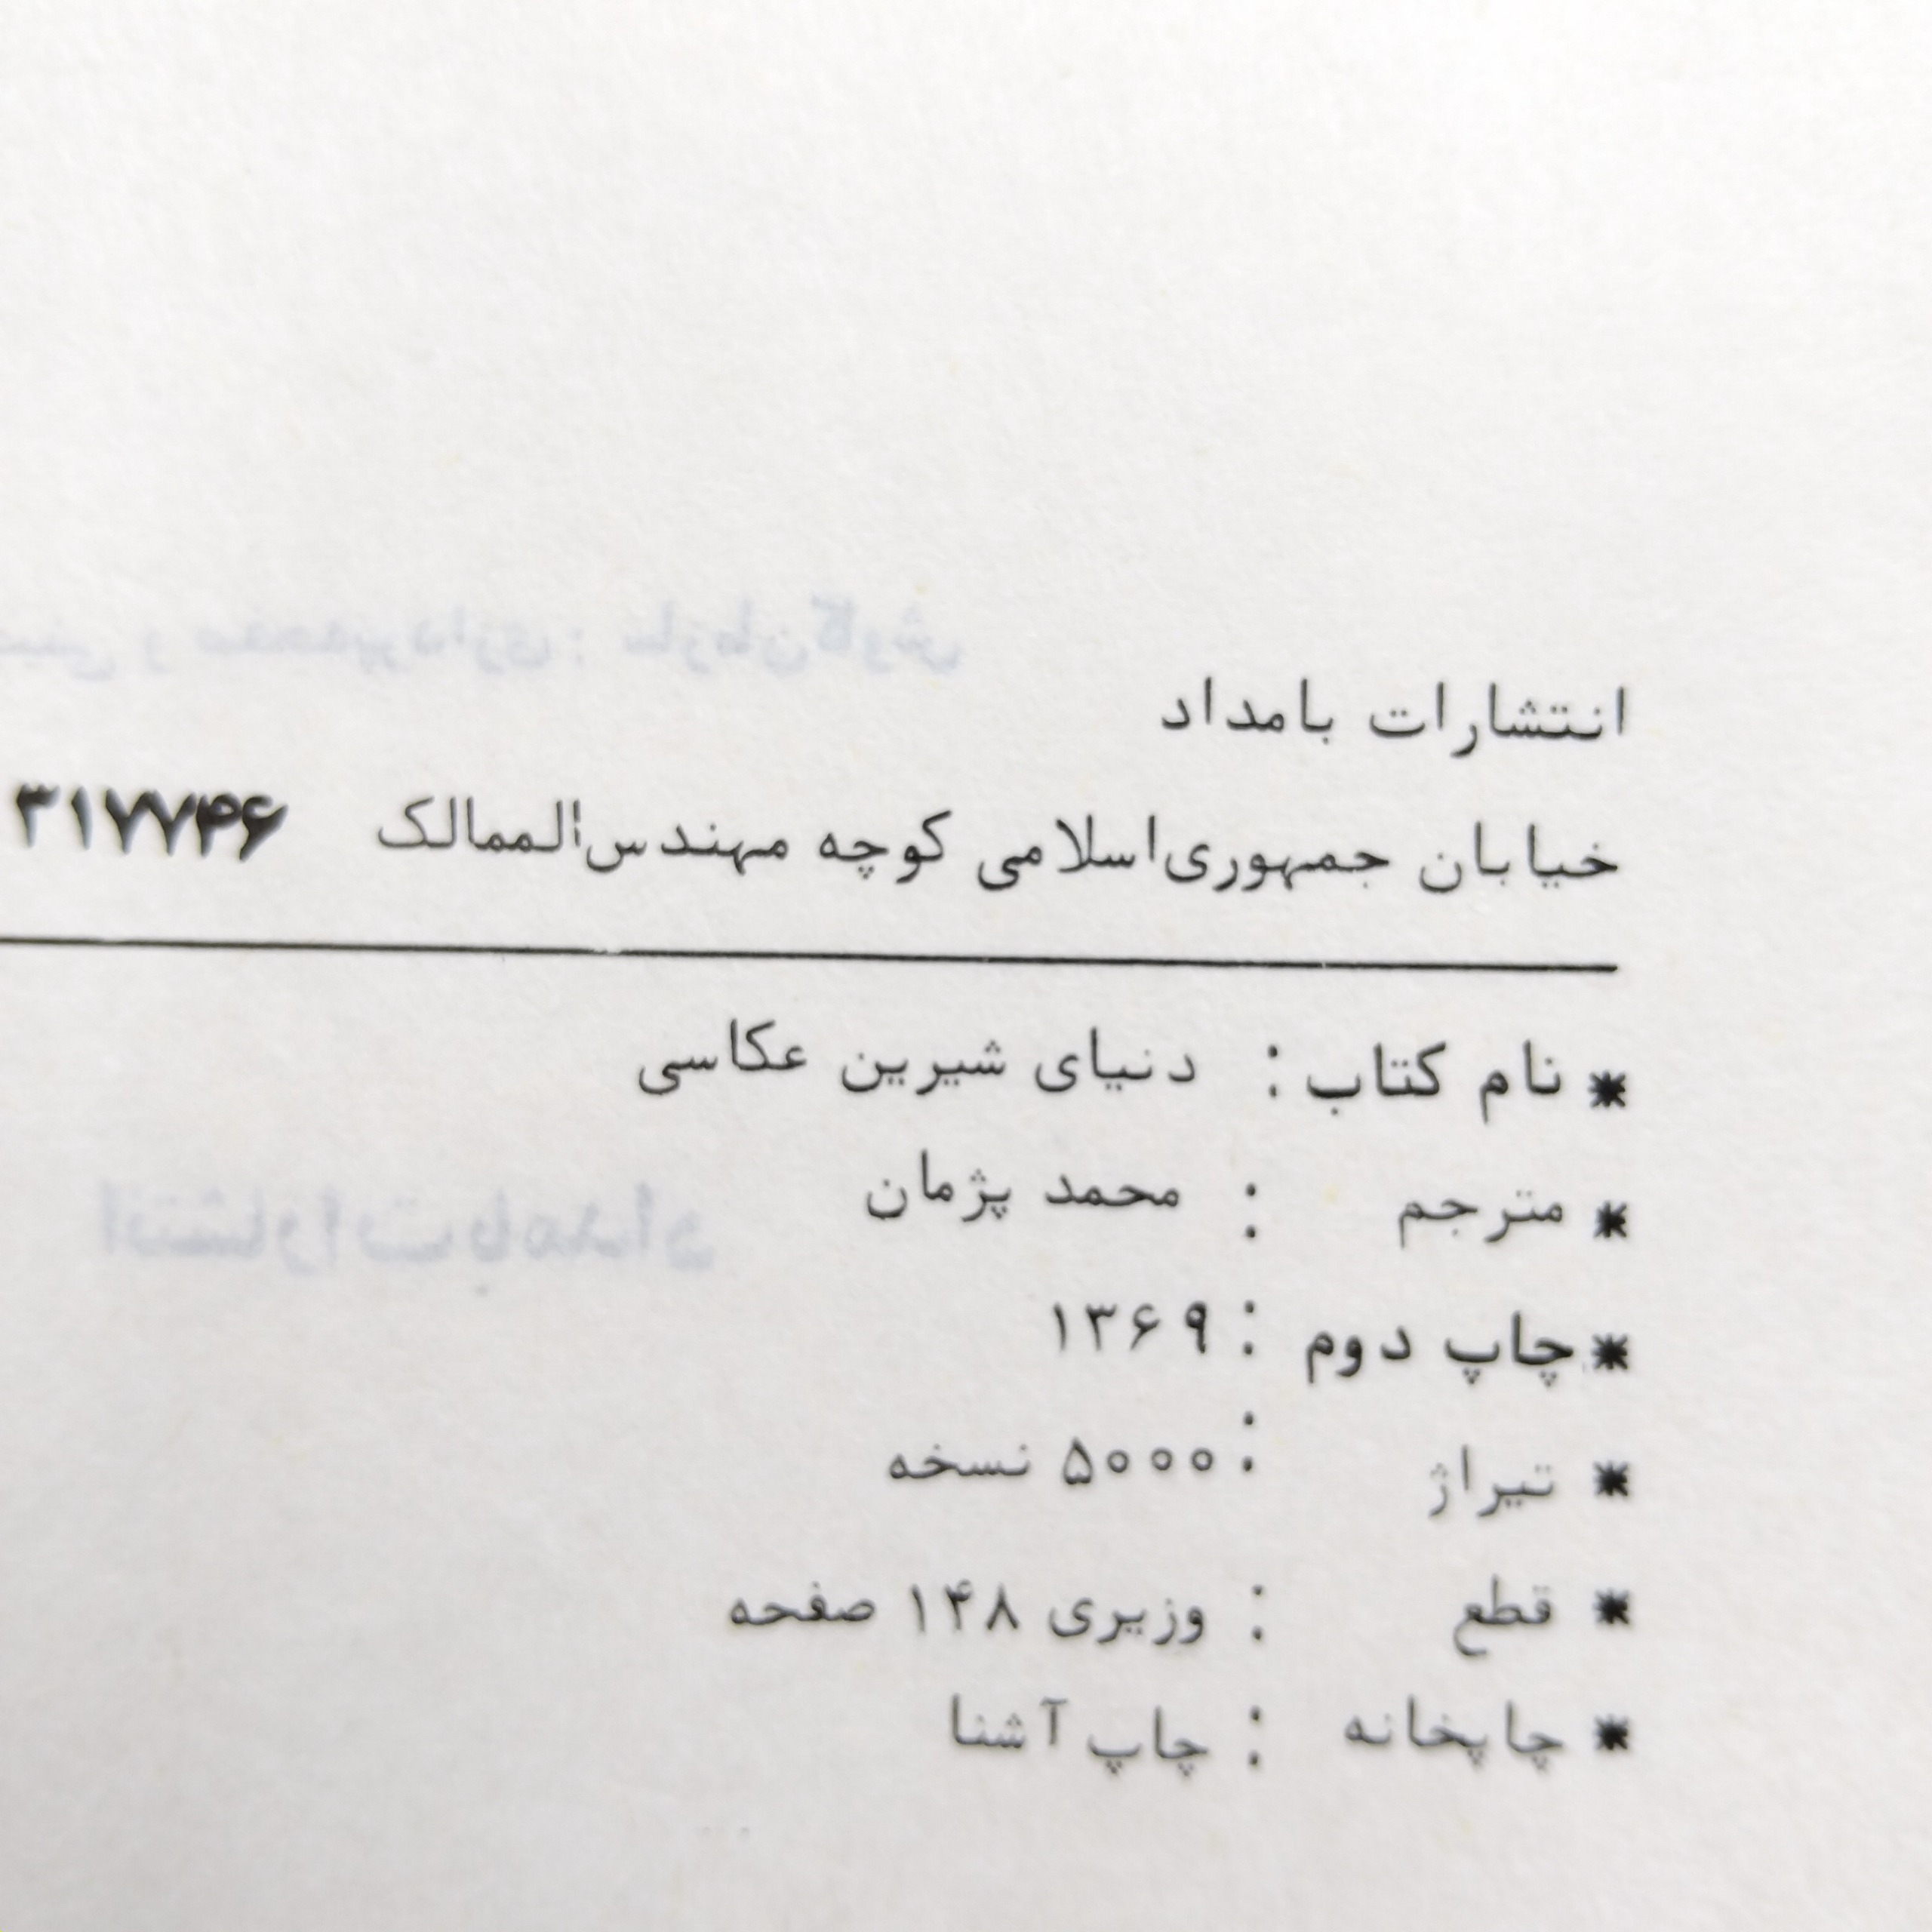 انتشارات بامداد
خیابان جمهوری‌اسلامی کوچه مهندس‌الممالک ۳۱۷۷۴۶
* نام کتاب : دنیای شیرین عکاسی
* مترجم : محمد پژمان
* چاپ دوم : ۱۳۶۹
* تیراژ : ۵۰۰۰ نسخه
* قطع : وزیری ۱۴۸ صفحه
* چاپخانه : چاپ آشنا